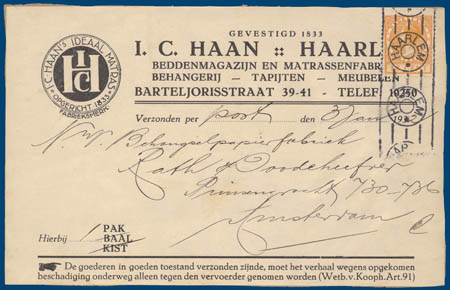 GEVESTIGD 1833
I. C. HAAN :: HAARL
BEDDENMAGAZIJN EN MATRASSENFABR
BEHANGERIJ — TAPIJTEN — MEUBELEN
BARTELJORISSTRAAT 39-41 - TELEF. 10250
I·C·HAAN'S IDEAAL MATRAS
HIC
OPGERICHT 1833
FABRIEKSMERK
HAARLEM
Verzonden per post den 3 Jan
N.V. Behangselpapierfabriek
Rath & Doodeheefver
Prinsengracht 730-736
Amsterdam
Hierbij 1 PAK
BAAL
KIST
De goederen in goeden toestand verzonden zijnde, moet het verhaal wegens opgekomen
beschadiging onderweg alleen tegen den vervoerder genomen worden (Wetb. v. Kooph. Art. 91)